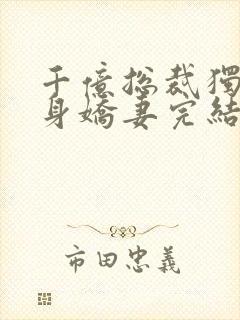 千億總裁獨
身嬌妻完結
市田忠義